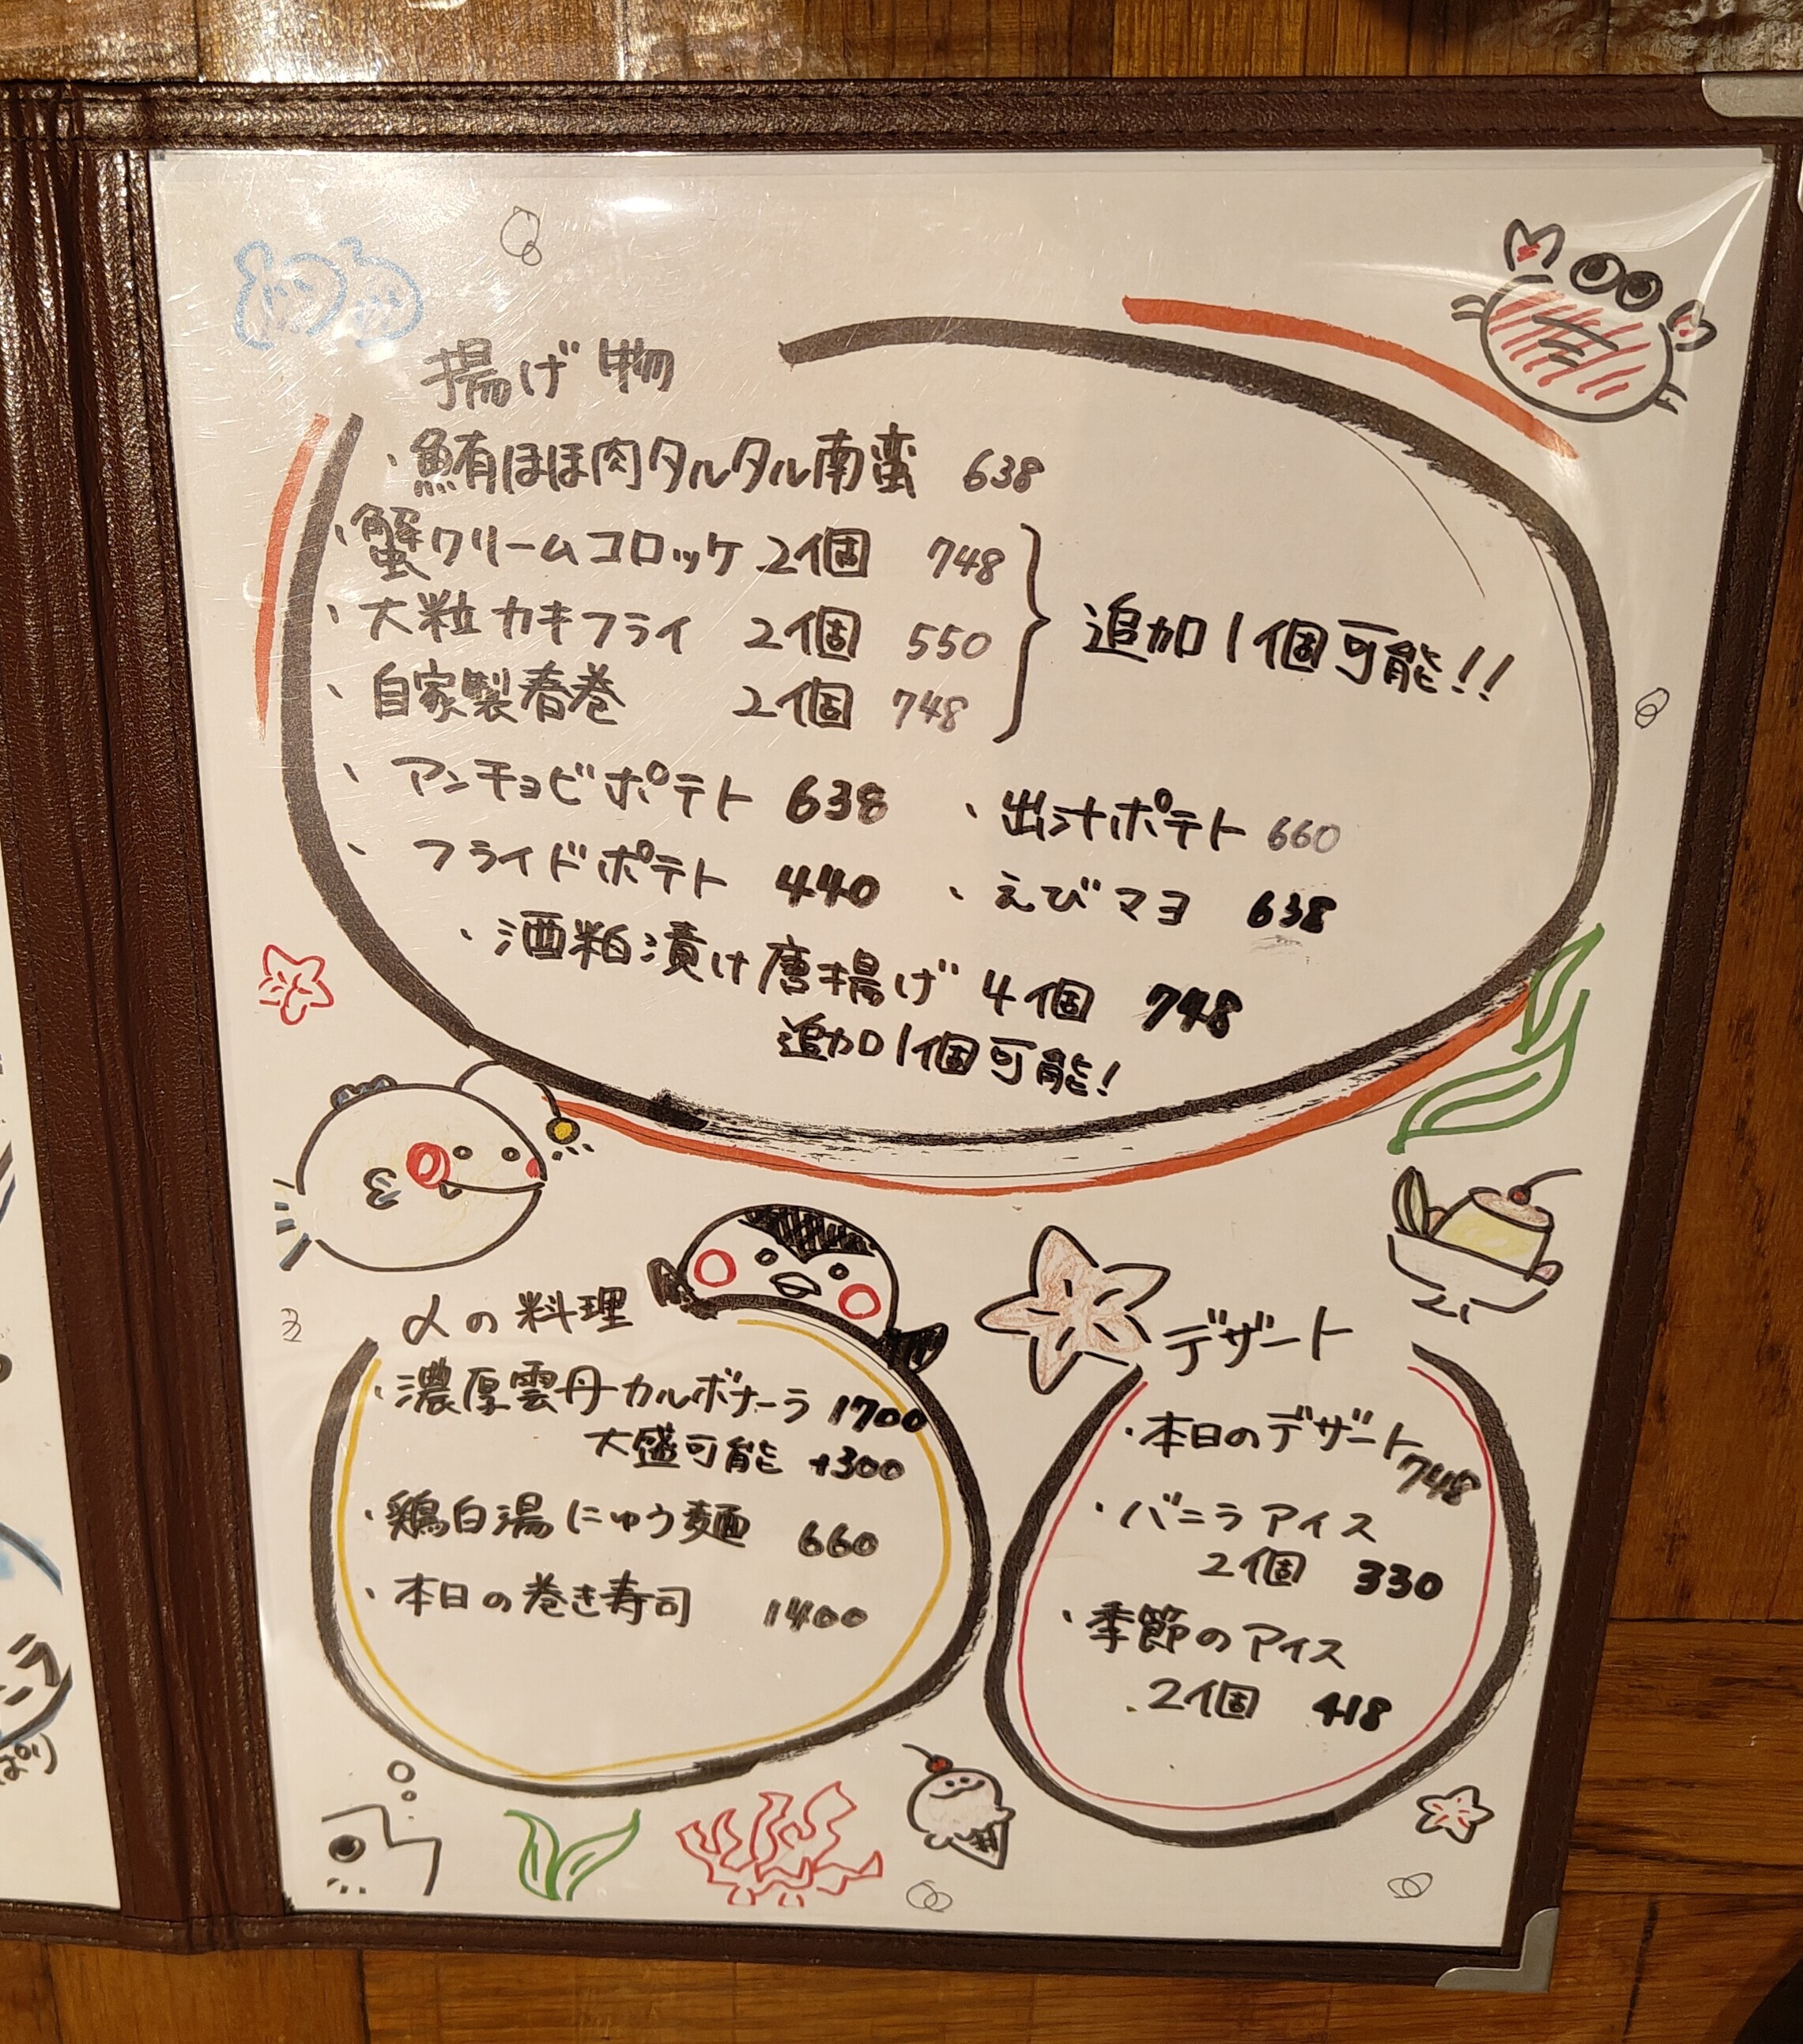 揚げ物
・鮪ほほ肉タルタル南蛮 638
・蟹クリームコロッケ 2個 748
・大粒カキフライ 2個 550
・自家製春巻 2個 748
追加1個可能!!
・アンチョビポテト 638 ・出汁ポテト 660
・フライドポテト 440 ・えびマヨ 638
・酒粕漬け唐揚げ 4個 748
追加1個可能!
〆の料理
・濃厚雲丹カルボナーラ 1700
大盛可能 +300
・鶏白湯にゅう麺 660
・本日の巻き寿司 1400
デザート
・本日のデザート 748
・バニラアイス
2個 330
・季節のアイス
2個 418